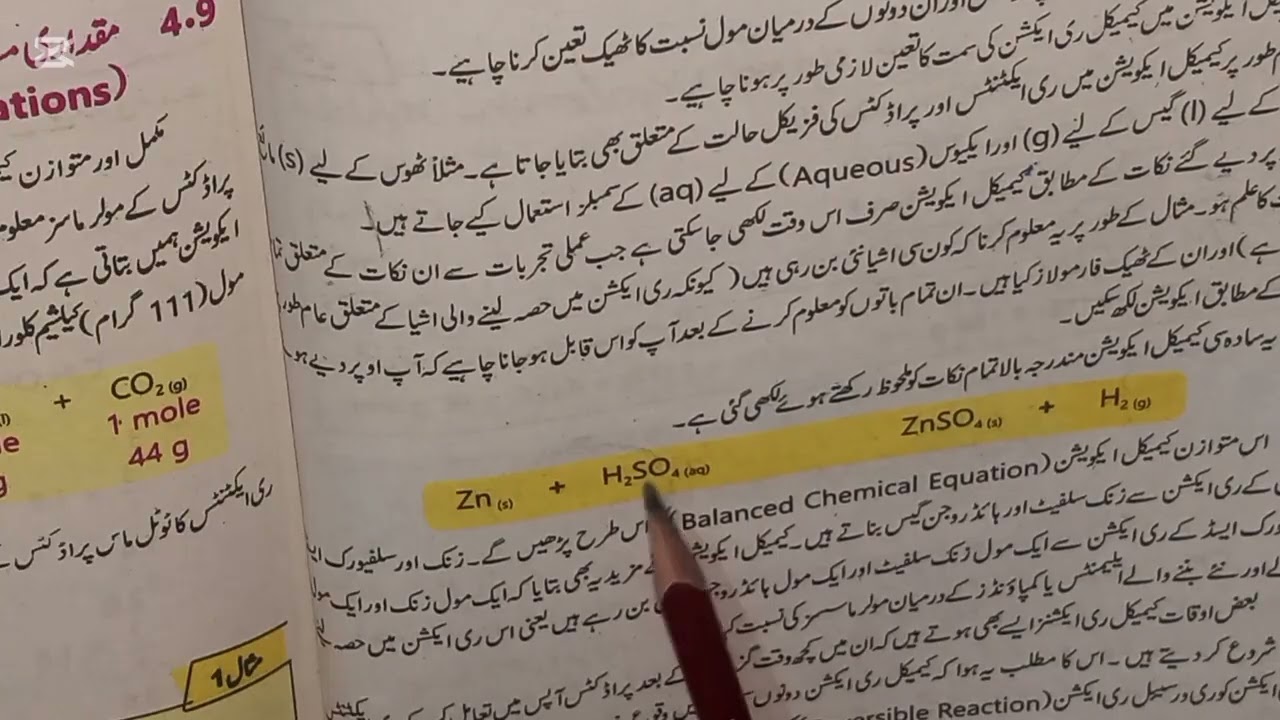 اور ان دونوں کے درمیان مول نسبت کا ٹھیک تعین کرنا چاہیے۔
ایکویشن میں کیمیکل ری ایکشن کی سمت کا تعین لازمی طور پر ہونا چاہیے۔
طور پر کیمیکل ایکویشن میں ری ایکٹنٹس اور پراڈکٹس کی فزیکل حالت کے متعلق بھی بتایا جاتا ہے۔ مثلاً ٹھوس کے لیے (s)
کے لیے (l) گیس کے لیے (g) اور ایکیوس (Aqueous) کے لیے (aq) کے سمبلز استعمال کیے جاتے ہیں۔
پر دیے گئے نکات کے مطابق کیمیکل ایکویشن صرف اس وقت لکھی جا سکتی ہے جب عملی تجربات سے ان نکات کے متعلق
کا علم ہو۔ مثال کے طور پر یہ معلوم کرنا کہ کون سی اشیا نئی بن رہی ہیں (کیونکہ ری ایکشن میں حصہ لینے والی اشیا کے متعلق عام طور
ہے) اور ان کے ٹھیک فارمولاز کیا ہیں۔ ان تمام باتوں کو معلوم کرنے کے بعد آپ کو اس قابل ہو جانا چاہیے کہ آپ اوپر دیے
کے مطابق ایکویشن لکھ سکیں۔
یہ سادہ سی کیمیکل ایکویشن مندرجہ بالا تمام نکات کو ملحوظ رکھتے ہوئے لکھی گئی ہے۔
Zn (s) + H₂SO₄ (aq) ZnSO₄ (s) + H₂ (g)
اس متوازن کیمیکل ایکویشن (Balanced Chemical Equation) اس طرح پڑھیں گے۔ زنک اور سلفیورک
کے ری ایکشن سے زنک سلفیٹ اور ہائڈروجن گیس بناتے ہیں۔ کیمیکل مزید یہ بھی بتایا کہ ایک مول زنک اور ایک
ایسڈ کے ری ایکشن سے ایک مول زنک سلفیٹ اور ایک مول بن رہے ہیں یعنی اس ری ایکشن میں حصہ
اور نئے بننے والے ایلیمنٹس یا کمپاؤنڈز کے درمیان مولر ماسز کی نسبت
بعض اوقات کیمیکل ری ایکشنز ایسے بھی ہوتے ہیں کہ ان میں کچھ وقت کے بعد پراڈکٹس آپس میں تعامل
شروع کر دیتے ہیں۔ اس کا مطلب یہ ہوا کہ کیمیکل ری ایکشن دونوں میں وقوع
کو ری ورسیبل ری ایکشن Reaction)
4.9 مقداری
ations)
مکمل اور متوازن
پراڈکٹس کے مولر ماسز
ایکویشن ہمیں بتاتی ہے کہ ایک
مول (111 گرام) کیلشیم
(l) + CO₂ (g)
1 mole
g 44 g
ری ایکٹنٹس کا ٹوٹل ماس پراڈکٹس
مثال 1